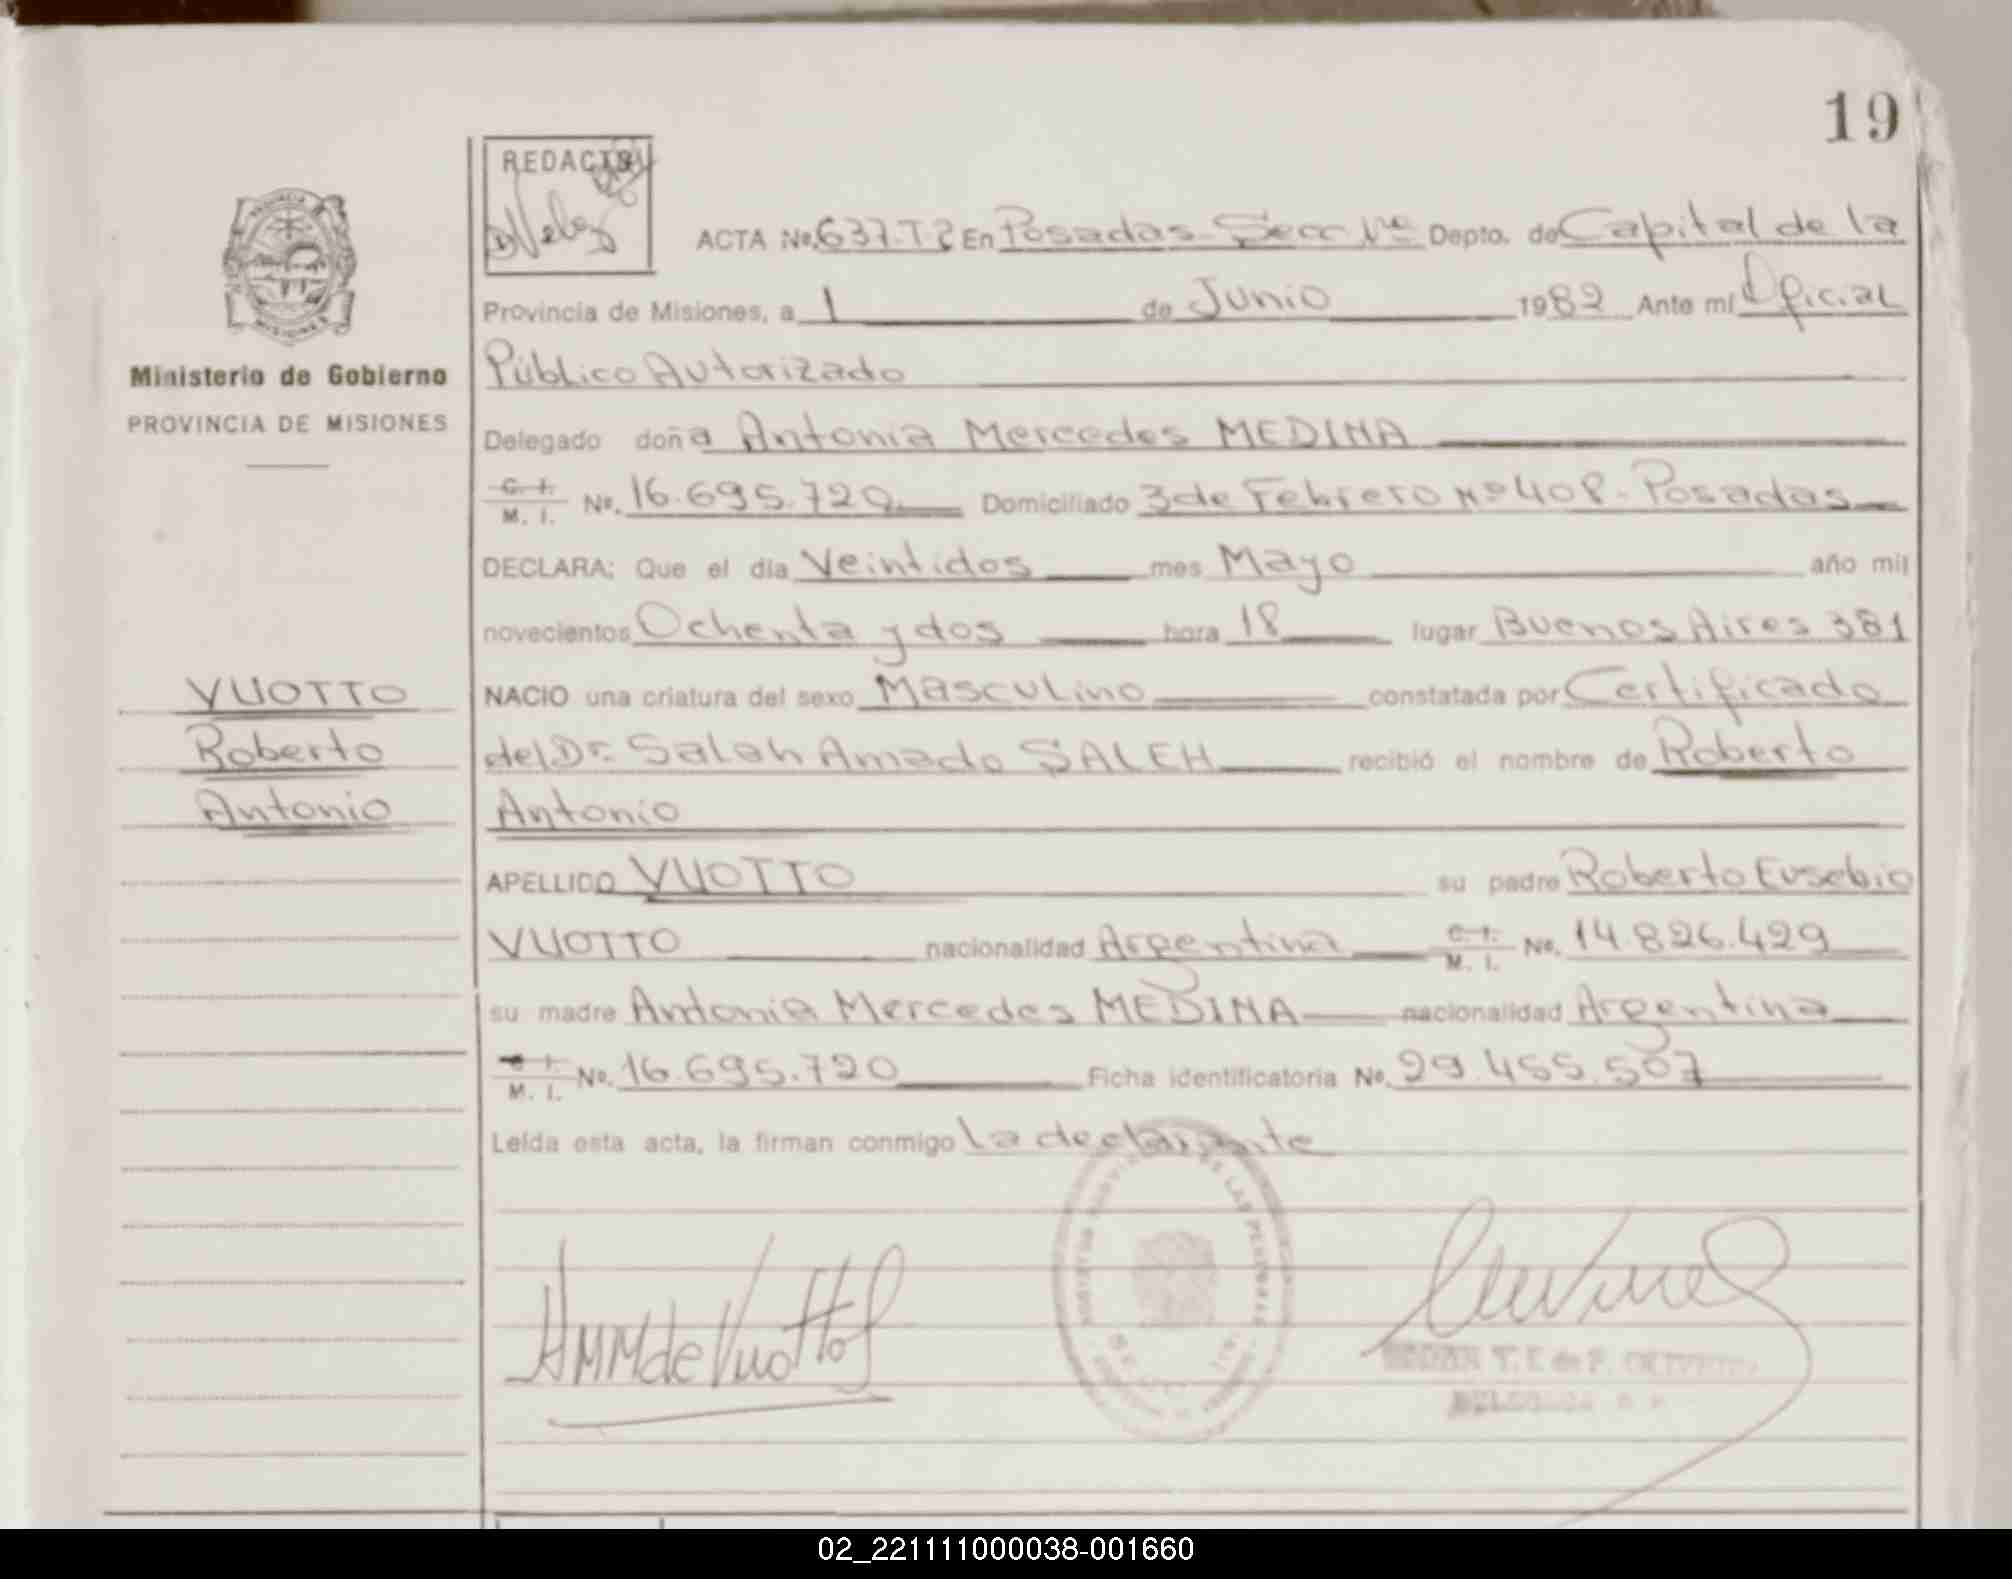 19
REDACTO
ACTA No. 637.T2 En Posadas Secc 1ra Depto. de Capital de la
Provincia de Misiones, a 1 de Junio 1982 Ante mí Oficial
Ministerio de Gobierno
PROVINCIA DE MISIONES
Público Autorizado
Delegado doña Antonia Mercedes MEDINA
C. I.
M. I. No. 16.695.720 Domiciliado 3 de Febrero Nº 408. Posadas
DECLARA: Que el día Veintidos mes Mayo año mil
novecientos Ochenta y dos hora 18 lugar Buenos Aires 381
VUOTTO
Roberto
Antonio
NACIO una criatura del sexo Masculino constatada por Certificado
del Dr. Saleh Amado SALEH recibió el nombre de Roberto
Antonio
APELLIDO VUOTTO su padre Roberto Eusebio
VUOTTO nacionalidad Argentina C. I. M. I. No. 14.826.429
su madre Antonia Mercedes MEDINA nacionalidad Argentina
M. I. No. 16.695.720 Ficha identificatoria No. 29.455.507
Leída esta acta, la firman conmigo la declarante
AMMdeVuotto
02_221111000038-001660